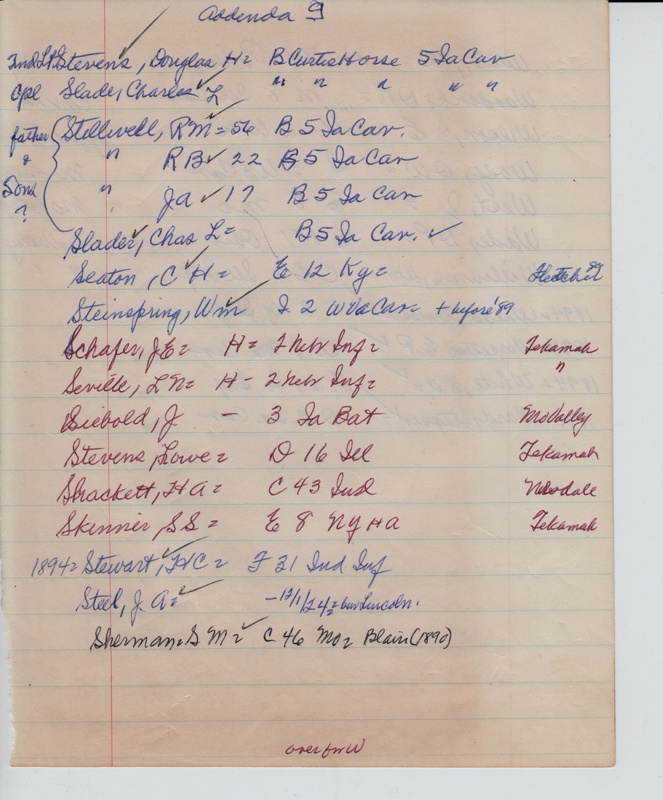 Addenda S
2nd Lt Stevens, Douglas H= B Curtis Horse 5 Ia Cav
Cpl Slader, Charles L " " " " "
father & Sons ?
Stillwell, RM = 56 B 5 Ia Cav.
" RB 22 B 5 Ia Cav
" Ja 17 B 5 Ia Cav
Slader, Chas L= B 5 Ia Cav.
Seaton, C H= E 12 Ky= Fletcher 89
Steinspring, Wm I 2 W Va Cav + before '89
Schafer, J E= H= 2 Nebr Inf= Tekamah
Seville, L N= H- 2 Nebr Inf= "
Siebold, J - 3 Ia Bat Mo Valley
Stevens, Lowe= D 16 Ill Tekamah
Shackett, H A= C 43 Ind
Skinner, SS= E 8 Ny HA Tekamah
1894= Stewart, H C= F 31 Ind Inf
Steel, J. A= -12/1/24= bur Lincoln.
Sherman= S M= C 46 Mo= Blair (1890)
over for W